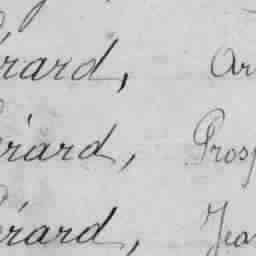 érard, Ar
érard, Prosp
érard, Jea